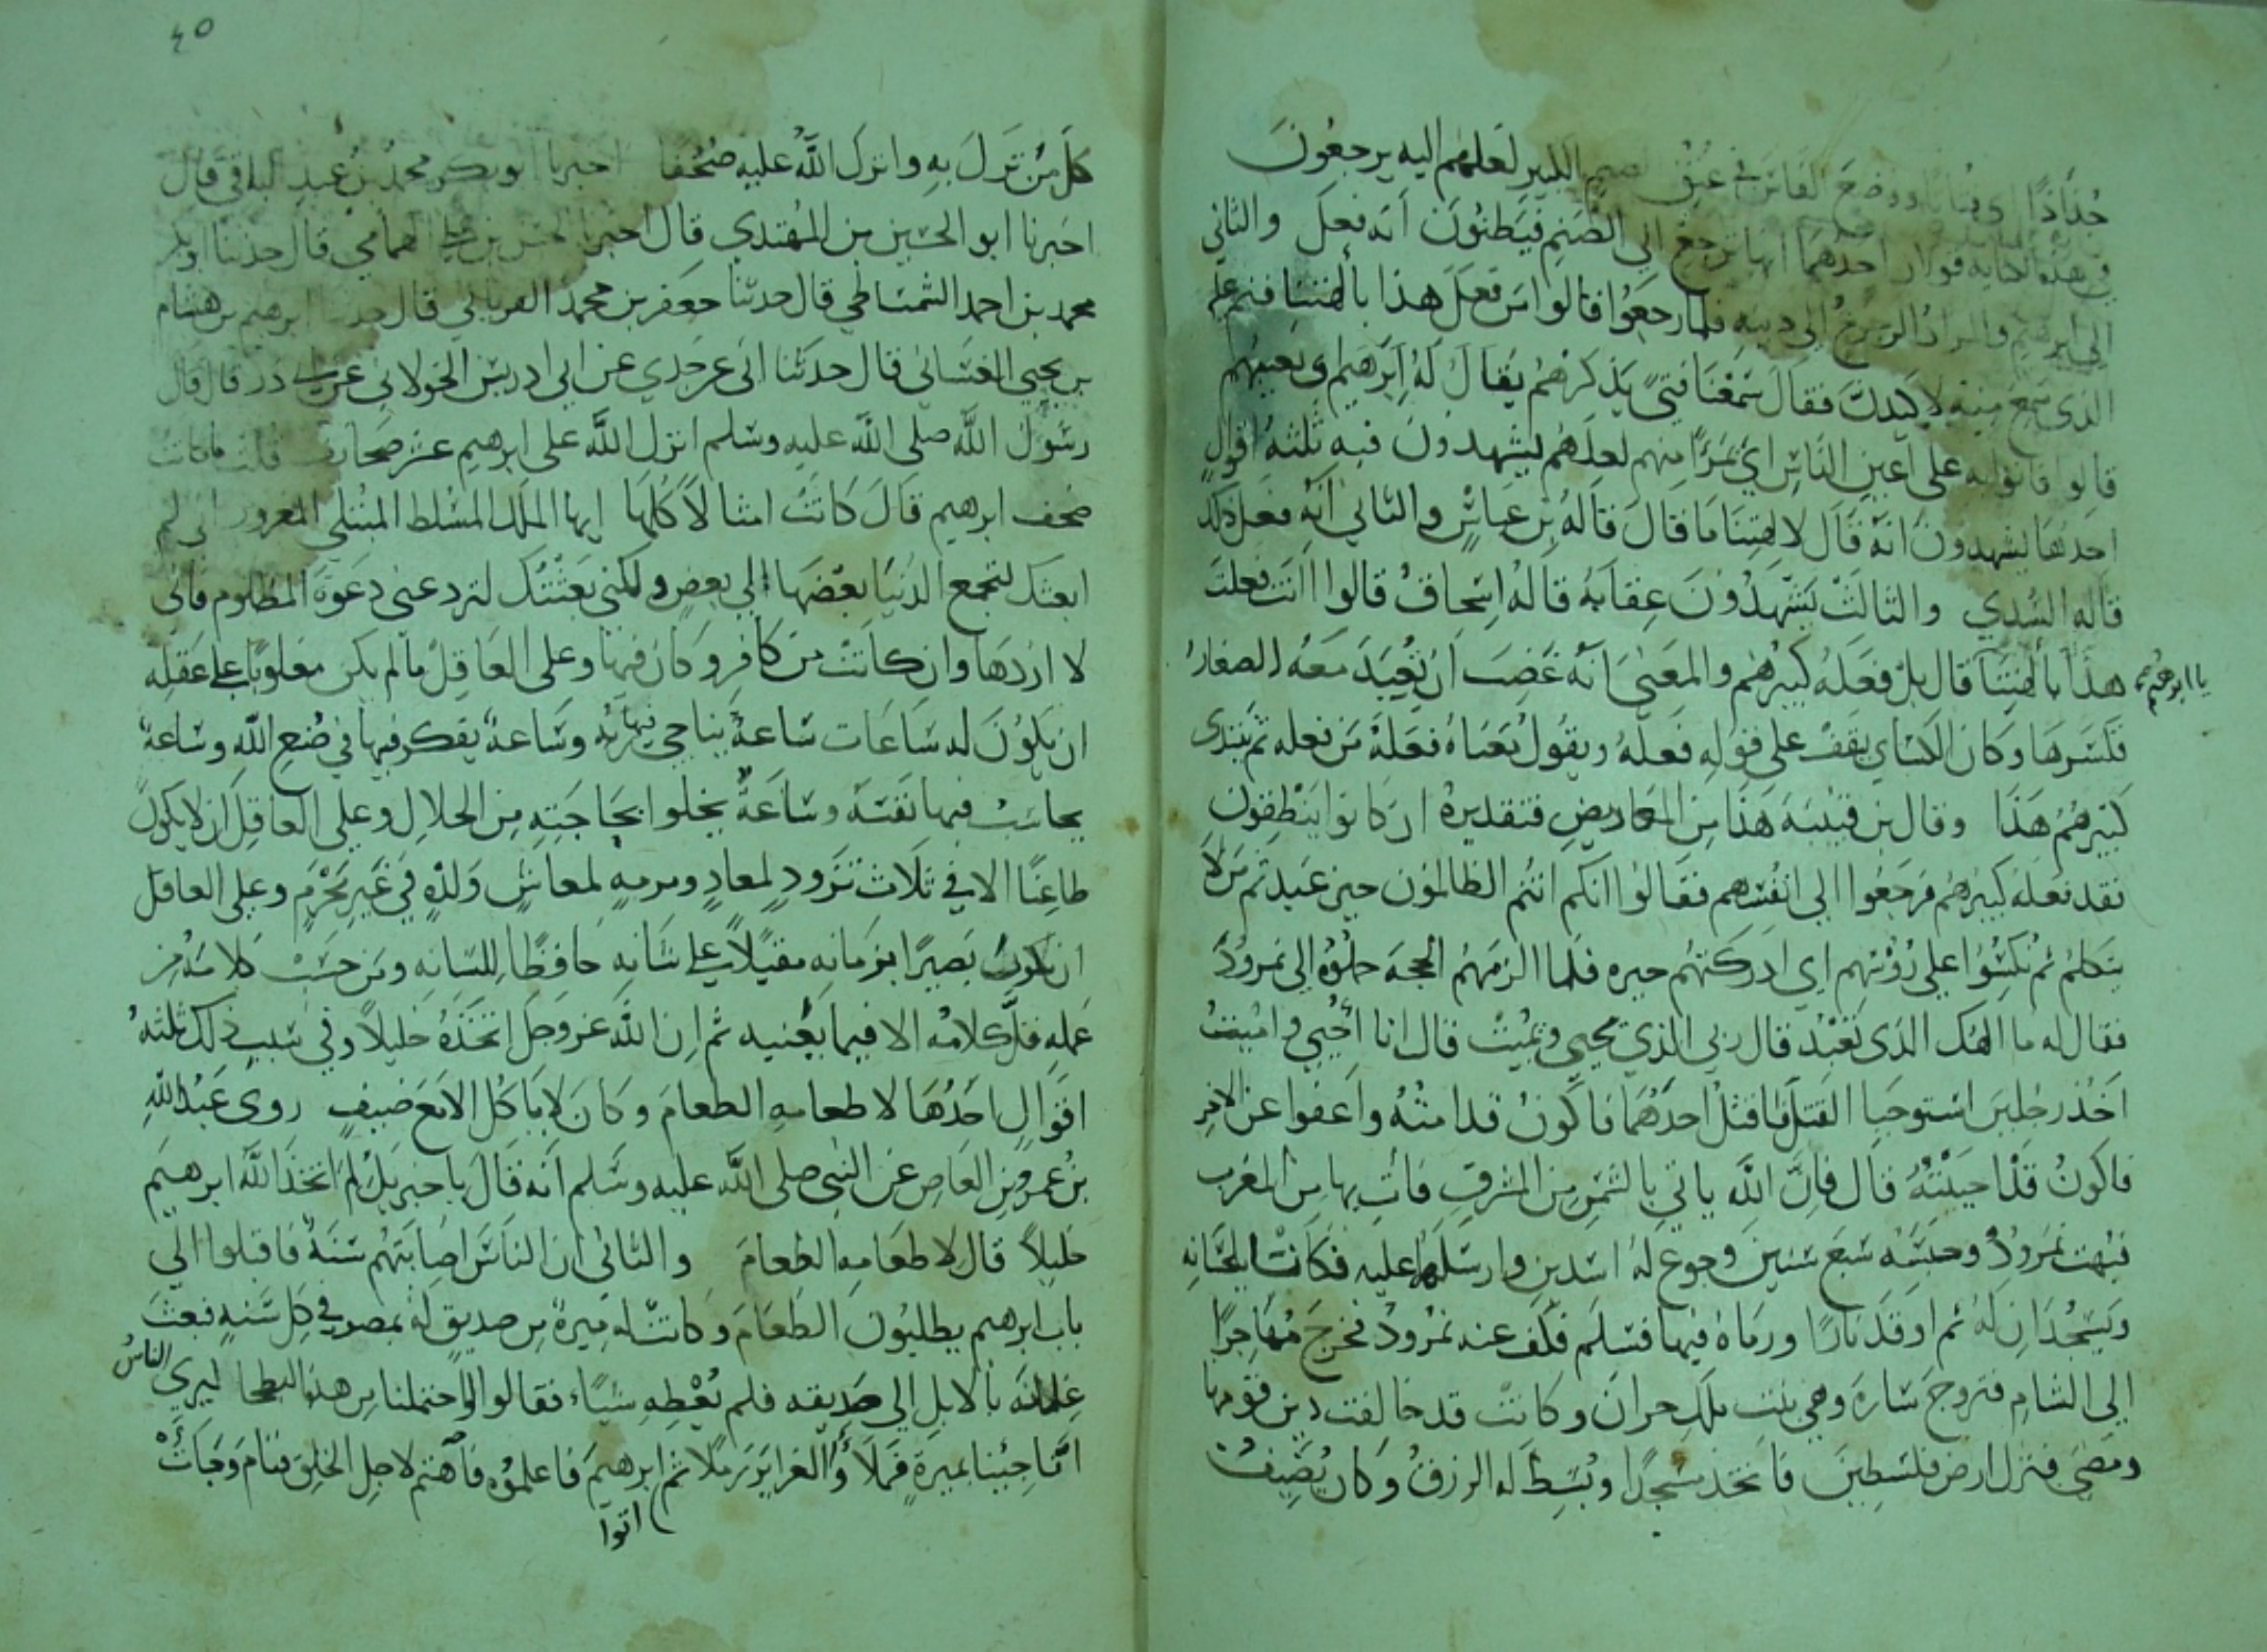 جُذَاذًا اي فتاتا ووضع الفاس في عنق الصنم الكبير لعلهم اليه يرجعون
في هذه الهايه قولان احدهما انها ترجع الي الصنم فيظنون انه فعل والثاني
الي ابرهيم والمراد الرجوع الي دينه فلما رجعوا قالوا من فعل هذا بالهتنا فنم عليه
الذي سمع منه لاكيدن فقال سَمعْنَا فتيً يَذكرهُم يقال لَهُ ابرهيم اي يعيبهم
قالوا فاتوا به على اعين الناس اي بمرًا منهم لعلهم يشهدون فيه ثلثة اقوال
احدها يشهدون انه قال لالهتنا ما قال قاله بن عباس والثاني انه فعل ذلك
قاله السدي والثالث يشهدون عقابه قاله اسحاق قالوا اانت فعلت
هذا بالهتنا يا ابرهيم قال بل فعله كبيرهم والمعنى انه غضب ان تُعبَد معه الصغار
فكسرها وكان الكساي يقف على قوله فعله ويقول معناه فعله من فعله ثم يبتدى
كبيرهم هذا وقال بن قتيبة هذا من المعاريض فتقديره ان كانوا ينطقون
فقد فعله كبيرهم فرجعوا الي انفسهم فقالوا انكم انتم الظالمون حين عبدتم من لا
يتكلم ثم نكسُوا علي رؤسهم اي ادركتهم حيره فلما الزمهم الحجه حملوه الي نمرود
فقال له ما الهك الذي تعبد قال ربي الذي يحيي ويميت قال انا احيي واميت
اخذ رجلين استوجبا القتل فاقتل احدهما فاكون قد امته واعفوا عن الاخر
فاكون قد احييته قال فان الله ياتي بالشمس من المشرق فات بها من المغرب
فبهت نمرود وحبسه سبع سنين وجوع له اسدين وارسلهما عليه فكانا يلحسانه
ويسجدان له ثم اوقد نارًا ورماه فيها فسلم فكف عنه نمرود فخرج مهاجرًا
الي الشام فتزوج سارة وهي بنت ملك حران وكانت قد خالفت دين قومها
ومضى فنزل ارض فلسطين فاتخذ مسجدًا وبُسِطَ له الرزق وكان يُضيف
٤٥
كل من نزل به وانزل الله عليه صُحُفًا اخبرنا ابو بكر محمد بن عبد الباقي قال
اخبرنا ابو الحسين بن المهتدي قال اخبرنا الحسن بن الهمامي قال حدثنا ابو بكر
محمد بن احمد الشمشاطي قال حدثنا جعفر بن محمد الفريابي قال حدثنا ابرهيم بن هشام
بن يحيي الغساني قال حدثنا ابي عن جدي عن ابي ادريس الخولاني عن ابي ذر قال قال
رسول الله صلى الله عليه وسلم انزل الله على ابرهيم عشر صحايف قلت ما كانت
صحف ابرهيم قال كانت امثالاً كلها ايها الملك المسلط المبتلي المغرور اني لم
ابعثك لتجمع الدنيا بعضها الي بعض ولكني بعثتك لترد عني دعوة المظلوم فاني
لا اردها وان كانت من كافر وكان فيها وعلى العاقل ما لم يكن مغلوبًا على عقله
ان يكون له ساعات ساعةً يناجي فيها ربه وساعة يفكر فيها في صُنع الله وساعة
يحاسب فيها نفسه وساعةٌ يخلوا بحاجته من الحلال وعلي العاقل ان لا يكون
ظاعنًا الا في ثلاث تزود لمعاد ومرمه لمعاش ولذه في غير محرم وعلي العاقل
ان يكون بصيرًا بزمانه مقبلاً على شانه حافظًا للسانه ومن حسب كلامه من
عمله قل كلامه الا فيما يعنيه ثم ان الله عز وجل اتخذه خليلاً وفي سبب ذلك ثلثة
اقوال احدها لاطعامه الطعام وكان لا ياكل الا مع ضيف روى عبد الله
بن عمرو بن العاص عن النبي صلى الله عليه وسلم انه قال يا جبريل لم اتخذ الله ابرهيم
خليلاً قال لاطعامه الطعام والثاني ان الناس اصابتهم سنة فاقبلوا الي
باب ابرهيم يطلبون الطعام وكانت له ميرة من صديق له بمصر في كل سنه فبعث
غلمانه بالابل الي صديقه فلم يُعْطِهِ شياً فقالوا لو احتملنا من هذه البطحا ليري الناس
انا جئنا بميرة فملاوا الغراير رملا ثم اتوا ابرهيم فاعلموه فاهتم لاجل الخلق فنام وجات